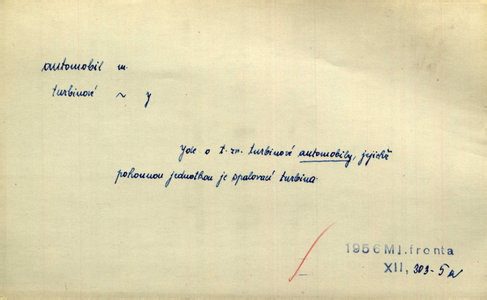 automobil m.
turbinové ~ y
Jde o t. zv. turbinové automobily, jejichž
pohonnou jednotkou je spalovací turbina.
1956 Ml. fronta
XII, 303-5